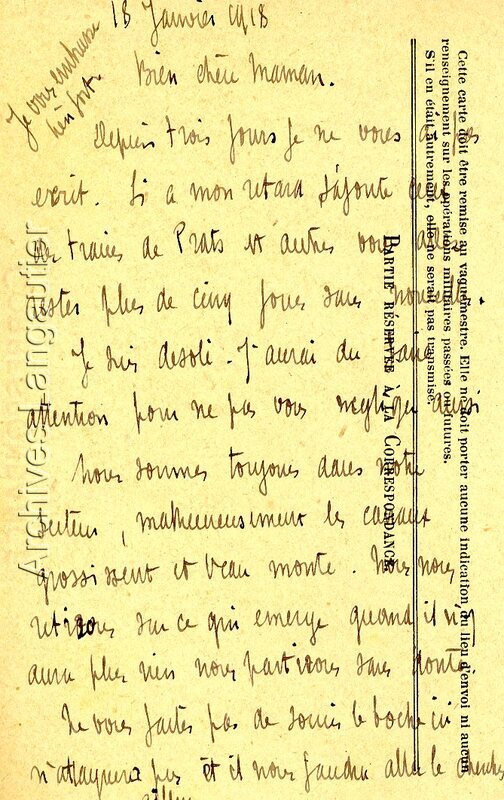 18 Janvier 1918
Je vous embrasse
bien fort.
Bien chère Maman.
Depuis trois jours je ne vous ai pas
ecrit. Si a mon retard s'ajoute celui
des trains de Prats et autres vous allez
rester plus de cinq jours sans nouvelles.
Je suis desolé. J'aurai du faire
attention pour ne pas vous negliger ainsi
Nous sommes toujours dans notre
secteur, malheureusement les canaux
grossissent et l'eau monte. Nous nous
retirons sur ce qui emerge quand il n'y
aura plus rien nous partirons sans doute
Ne vous faites pas de soucis le boche ici
n'attaquera pas et il nous faudra aller le chercher
ailleurs
PARTIE RÉSERVÉE À LA CORRESPONDANCE
Cette carte doit être remise au vaguemestre. Elle ne doit porter aucune indication du lieu d'envoi ni aucun
renseignement sur les opérations militaires passées ou futures.
S'il en était autrement, elle ne serait pas transmise.
Archives Langautier